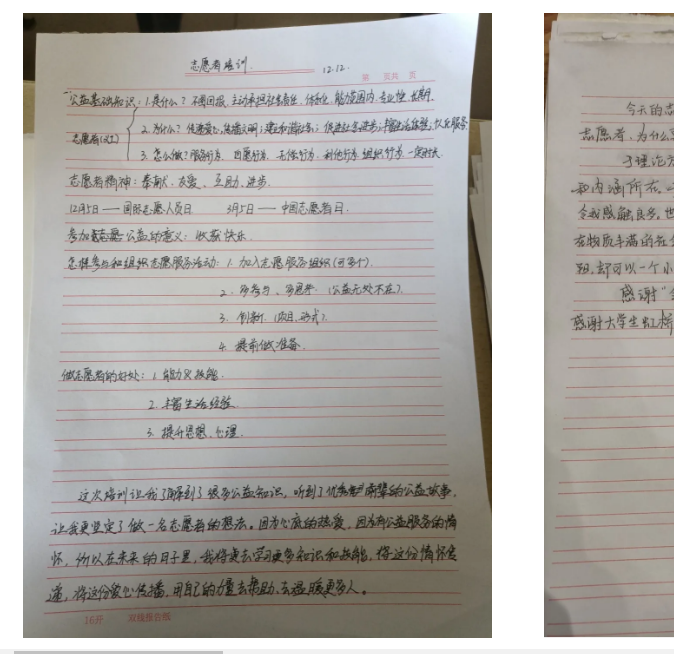 志愿者培训
12.12.
第 页共 页
公益基础知识：1.是什么？不图回报、主动承担社会责任、能力范围内、专业性、长期
志愿者(义工) 2.为什么？传递爱心，传播文明；建立和谐社会；促进社会进步；丰富生活体验；
3.怎么做？服务行为、自愿行为、无偿行为、利他行为、组织行为、一定时长
志愿者精神：奉献、友爱、互助、进步.
12月5日 — 国际志愿人员日 3月5日 — 中国志愿者日.
参加志愿公益的意义：收获快乐.
怎样参与和组织志愿服务活动：1.加入志愿服务组织(可多个).
2.多参与、多思考.(公益无处不在).
3.创新.(项目、形式).
4.提前做准备.
做志愿者的好处：1.能力又技能.
2.丰富生活经验.
3.提升思想、心理.
这次培训让我了解到了很多公益知识，听到了优秀前辈的公益故事，
让我更坚定了做一名志愿者的想法。因为心底的热爱，因为有公益服务的情
怀，所以在未来的日子里，我将更去学习更多知识和技能，将这份情怀传
递，将这份爱心传播，用自己的力量去帮助、去温暖更多人。
16开 双线报告纸
今天的志
志愿者，为什么
于理论方
和内涵所在。
令我感触良多，也
在物质丰满的社会
短，却可以一个小
感谢“
感谢大学生